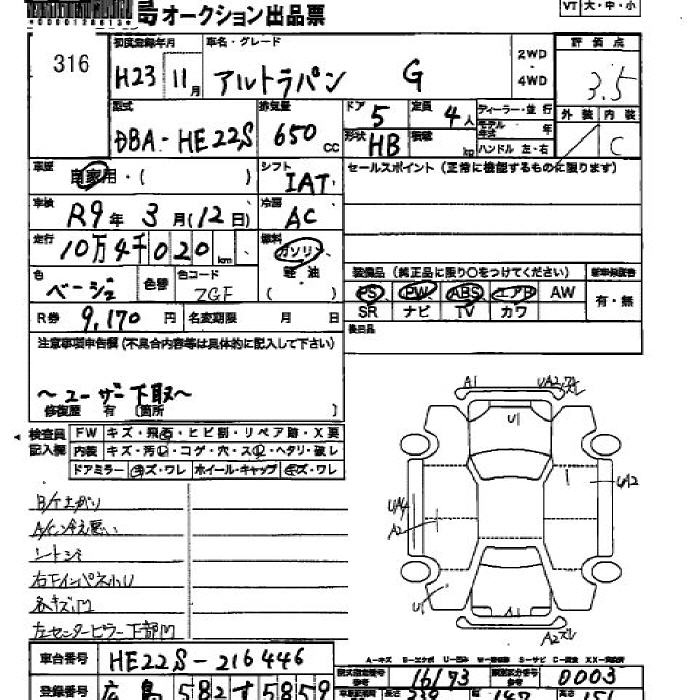 島オークション出品票
VT 大・中・小
316
初度登録年月
H23 11月
車名・グレード
アルトラパン G
2WD
4WD
評価点
3.5
型式
DBA-HE22S
排気量
650 CC
ドア 5
形状 HB
定員 4人
積載 kg
ディーラー・並行
モデル年式 年
ハンドル 左・右
外装 内装
C
車歴
自家用・( )
シフト
IAT
セールスポイント(正常に機能するものに限ります)
車検
R9年3月(12日)
冷房
AC
走行
10万4千020km
燃料
ガソリン
軽油
( )
色
ベージュ
色替
色コード
ZGF
装備品(純正品に限り○をつけてください)
PS PW ABS エアB AW
SR ナビ TV カワ
有・無
R券 9,170円
名変期限 月 日
後日品
注意事項申告欄(不具合内容等は具体的に記入して下さい)
~ユーザー下取~
修復歴 有 〔箇所 〕
検査員記入欄
FW キズ・飛石・ヒビ割・リペア跡・X要
内装 キズ・汚レ・コゲ・穴・スレ・ヘタリ・破レ
ドアミラー キズ・ワレ ホイール・キャップ キズ・ワレ
A/C冷え悪い
左センターピラー下部凹
A1
UA2
U1
UA2
UA4
A2
U1
A1
A2ズレ
A-キズ E-エクボ U-凹み S-サビ
車台番号 HE22S-216446
登録番号 広島 582 す 5859
型式指定番号 16173
類別区分番号 0003